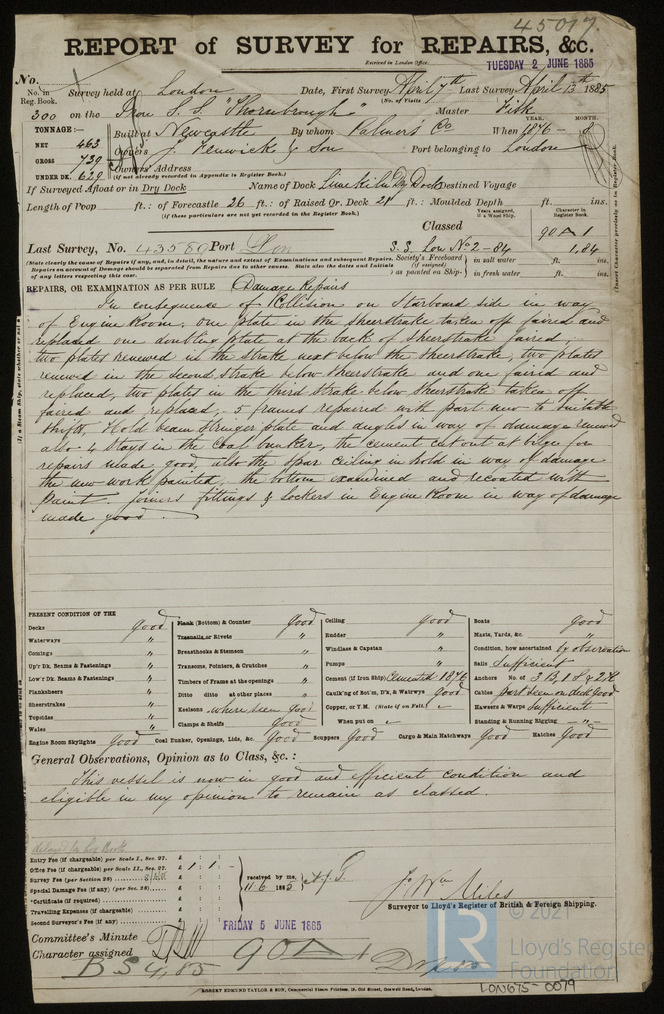 45077.
REPORT of SURVEY for REPAIRS, &c.
Received in London Office,
TUESDAY 2 JUNE 1885
No.
No. in Reg. Book. Survey held at London Date, First Survey April 7th Last Survey April 13th 1885
(No. of Visits
300 on the Iron S.S. "Thornbrough" Master Fisk
TONNAGE:— Built at Newcastle By whom Palmer's Co When 1876 YEAR. MONTH.
NET 463
GROSS 739 Owners J. Fenwick & Son Port belonging to London
UNDER DK. 629 Owners' Address
(if not already recorded in Appendix to Register Book.)
If Surveyed Afloat or in Dry Dock Name of Dock Limekiln Dry Dock Destined Voyage
Length of Poop ft.: of Forecastle 26 ft.: of Raised Qr. Deck 21 ft.: Moulded Depth ft. ins.
(if these particulars are not yet recorded in the Register Book.)
Years assigned, if a Wood Ship. Character in Register Book.
Classed 90 A 1
Last Survey, No. 43580 Port Lon S.S. Lon No 2-84 1,84
(State clearly the cause of Repairs if any, and, in detail, the nature and extent of Examinations and subsequent Repairs.
Repairs on account of Damage should be separated from Repairs due to other causes. State also the dates and Initials
of any letters respecting this case.
Society's Freeboard (if assigned) as painted on Ship- in salt water ft. ins.
in fresh water ft. ins.
REPAIRS, OR EXAMINATION AS PER RULE Damage Repairs
In consequence of Collision on Starboard side in way
of Engine Room, one plate in the sheerstrake taken off faired and
replaced one doubling plate at the back of sheerstrake faired,
two plates renewed in the strake next below the sheerstrake, two plates
renewed in the second strake below sheerstrake and one faired and
replaced, two plates in the third strake below sheerstrake taken off
faired and replaced, 5 frames repaired with part new to suitable
shifts, Hold beam stringer plate and angles in way of damage renewed
also 4 stays in the Coal bunker, the cement cut out at bilge for
repairs made good, also the spar ceiling in hold in way of damage
the new work painted, the bottom examined and recoated with
paint. Joiners fittings & lockers in Engine Room in way of damage
made good.
PRESENT CONDITION OF THE
Decks good
Waterways "
Comings "
Up'r Dk. Beams & Fastenings "
Low'r Dk. Beams & Fastenings "
Planksheers "
Sheerstrakes "
Topsides "
Wales "
Plank (Bottom) & Counter good
Treenails, or Rivets "
Breasthooks & Stemson "
Transoms, Pointers, & Crutches "
Timbers of Frame at the openings "
Ditto ditto at other places "
Keelsons where seen good
Clamps & Shelfs good
Ceiling good
Rudder "
Windlass & Capstan "
Pumps "
Cement (if Iron Ship) Cemented 1876
Caulk'ng of Bot'm, D'k, & Watrwys good
Copper, or Y.M. (State if on Felt.) "
When put on "
Boats good
Masts, Yards, &c. "
Condition, how ascertained by observation
Sails Sufficient
Anchors No. of 3 B, 1 S & 2 K
Cables part seen on deck good
Hawsers & Warps Sufficient
Standing & Running Rigging "
Engine Room Skylights Good Coal Bunker, Openings, Lids, &c. Good Scuppers Good Cargo & Main Hatchways Good Hatches Good
General Observations, Opinion as to Class, &c.:
This vessel is now in good and efficient condition and
eligible in my opinion to remain as classed.
Entry Fee (if chargeable) per Scale I., Sec. 27. £ : :
Office Fee (if chargeable) per Scale II., Sec. 27. £ 1 : 1 : -
Survey Fee (per Section 28) £ : :
Special Damage Fee (if any) (per Sec. 28) £ : :
*Certificate (if required) £ : :
Travelling Expenses (if chargeable) £
Second Surveyor's Fee (if any) £
received by me,
11/6 1885
Jno. Wm Miles
Surveyor to Lloyd's Register of British & Foreign Shipping.
FRIDAY 5 JUNE 1885
Committee's Minute
Character assigned 90 A 1
BS 4,85
ROBERT EDMUND TAYLOR & SON, Commercial Steam Printers, 19, Old Street, Goswell Road, London.
© 2021
LR
Lloyd's Register
Foundation
LON675-0079